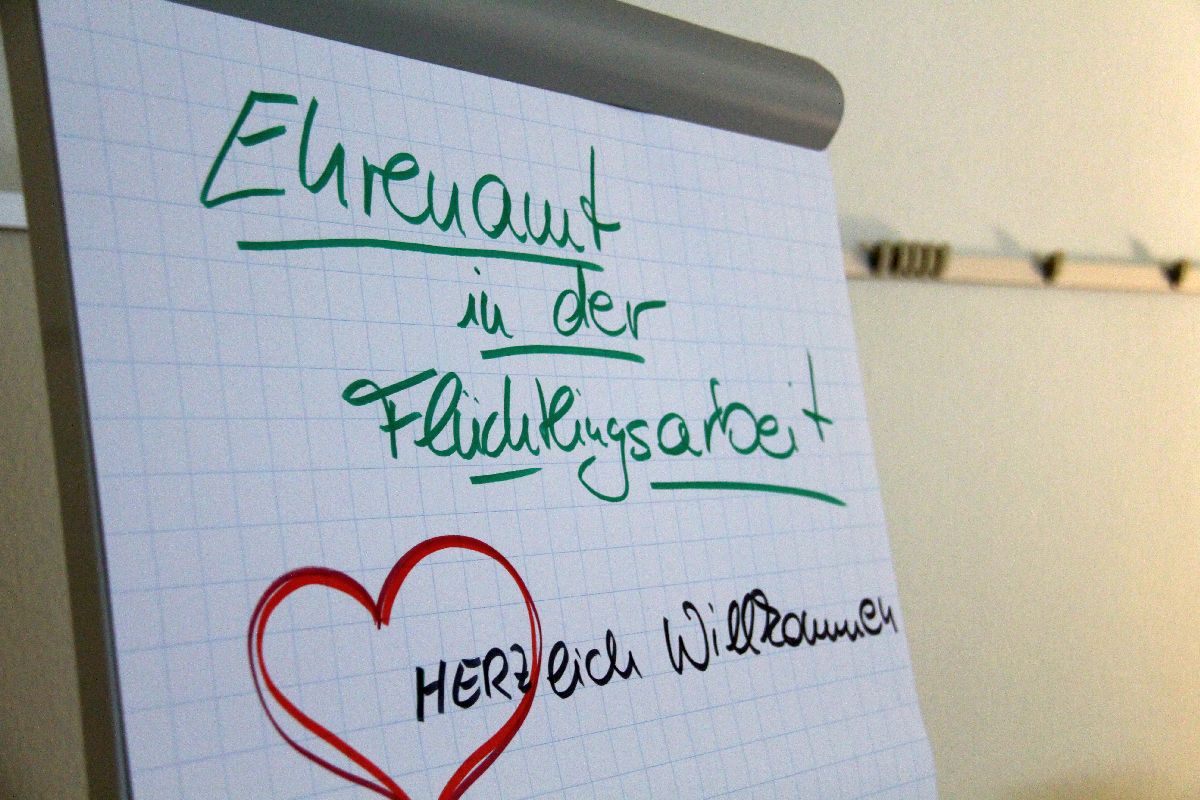 Ehrenamt
in der
Flüchtlingsarbeit
HERZlich Willkommen